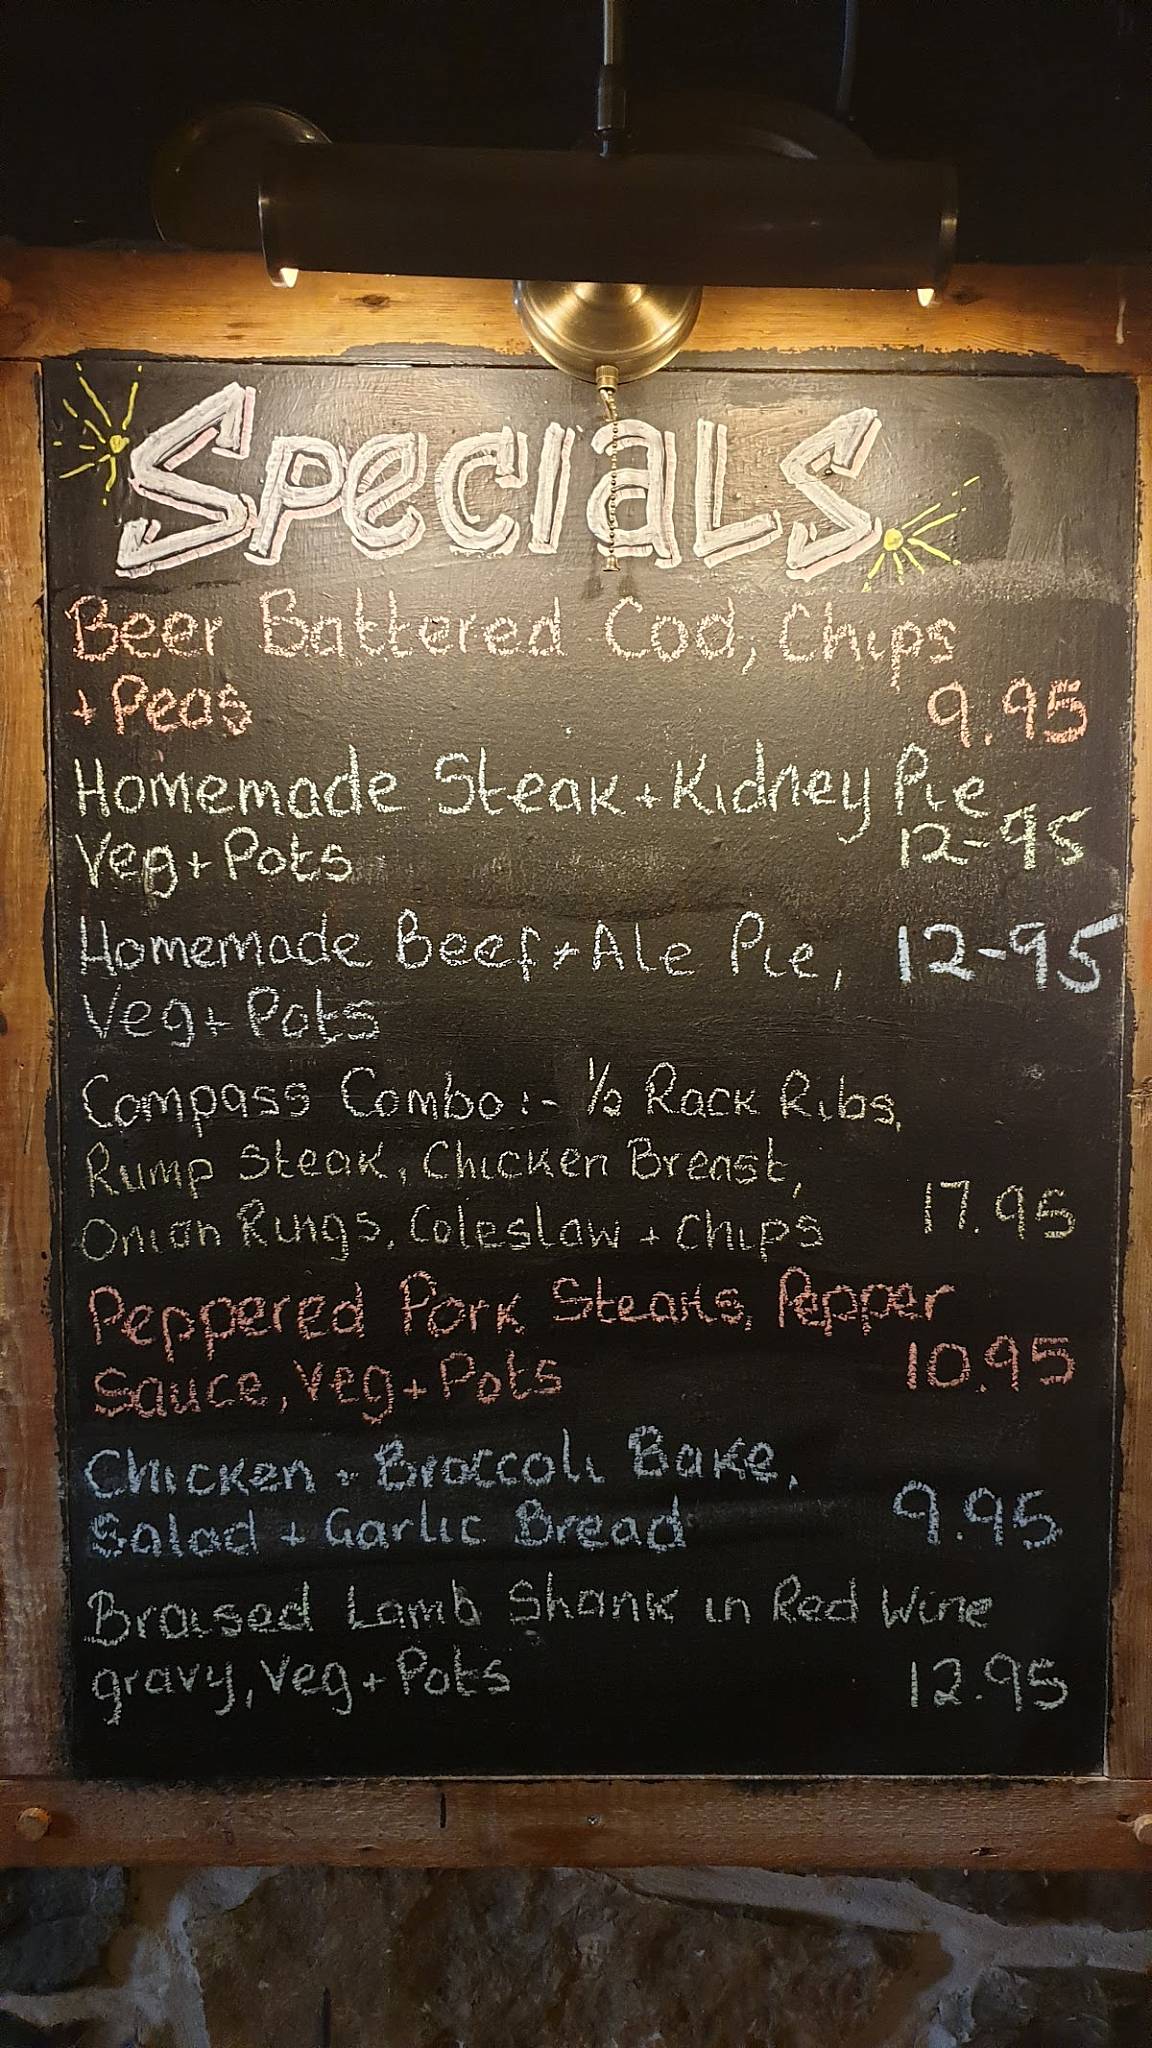 Specials
Beer Battered Cod, Chips
+ Peas 9.95
Homemade Steak + Kidney Pie
Veg + Pots 12-95
Homemade Beef + Ale Pie, 12-95
Veg + Pots
Compass Combo:- ½ Rack Ribs,
Rump Steak, Chicken Breast,
Onion Rings, Coleslaw + Chips 17.95
Peppered Pork Steaks, Pepper
Sauce, Veg + Pots 10.95
Chicken + Broccoli Bake,
Salad + Garlic Bread 9.95
Braised Lamb Shank in Red Wine
gravy, Veg + Pots 12.95